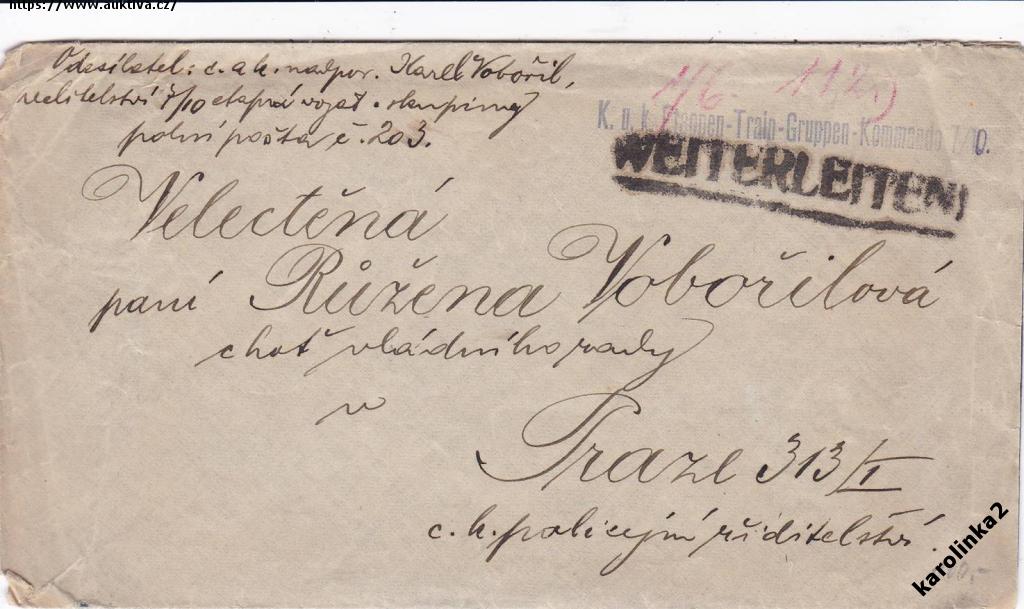 https://www.auktiva.cz/
Odesílatel: c. a k. nadpor. Karel Vobořil,
velitelství 7/10 etapní vozat. skupiny
polní pošta č. 203.
1/6.
K. u. k. Etappen-Train-Gruppen-Kommando 7/10.
WEITERLEITEN!
Velectěná
paní Růžena Vobořilová
choť vládního rady
v
Praze 313/I
c. k. policejní ředitelství.
karolinka2